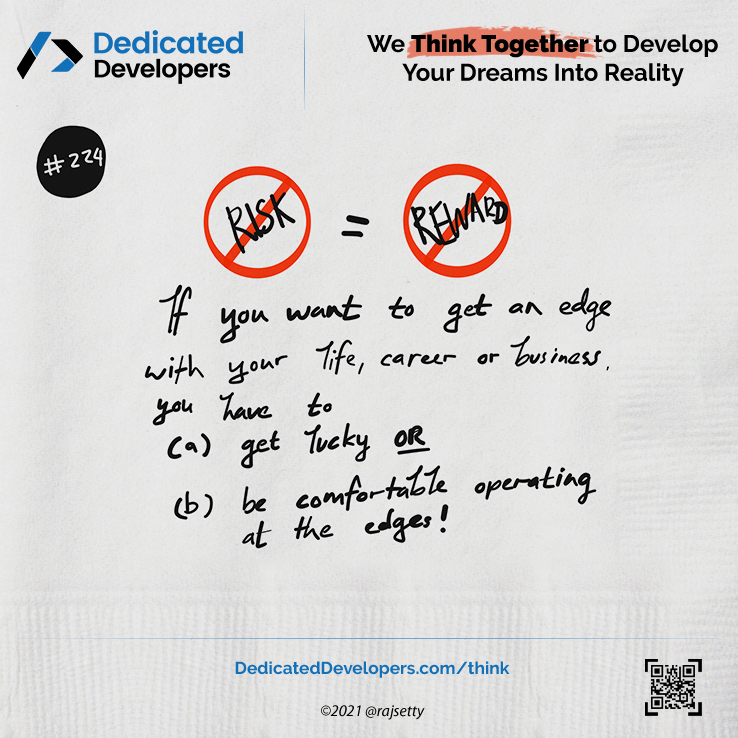 Dedicated
Developers
We Think Together to Develop
Your Dreams Into Reality
#224
RISK = REWARD
If you want to get an edge
with your life, career or business,
you have to
(a) get lucky OR
(b) be comfortable operating
at the edges!
DedicatedDevelopers.com/think
©2021 @rajsetty